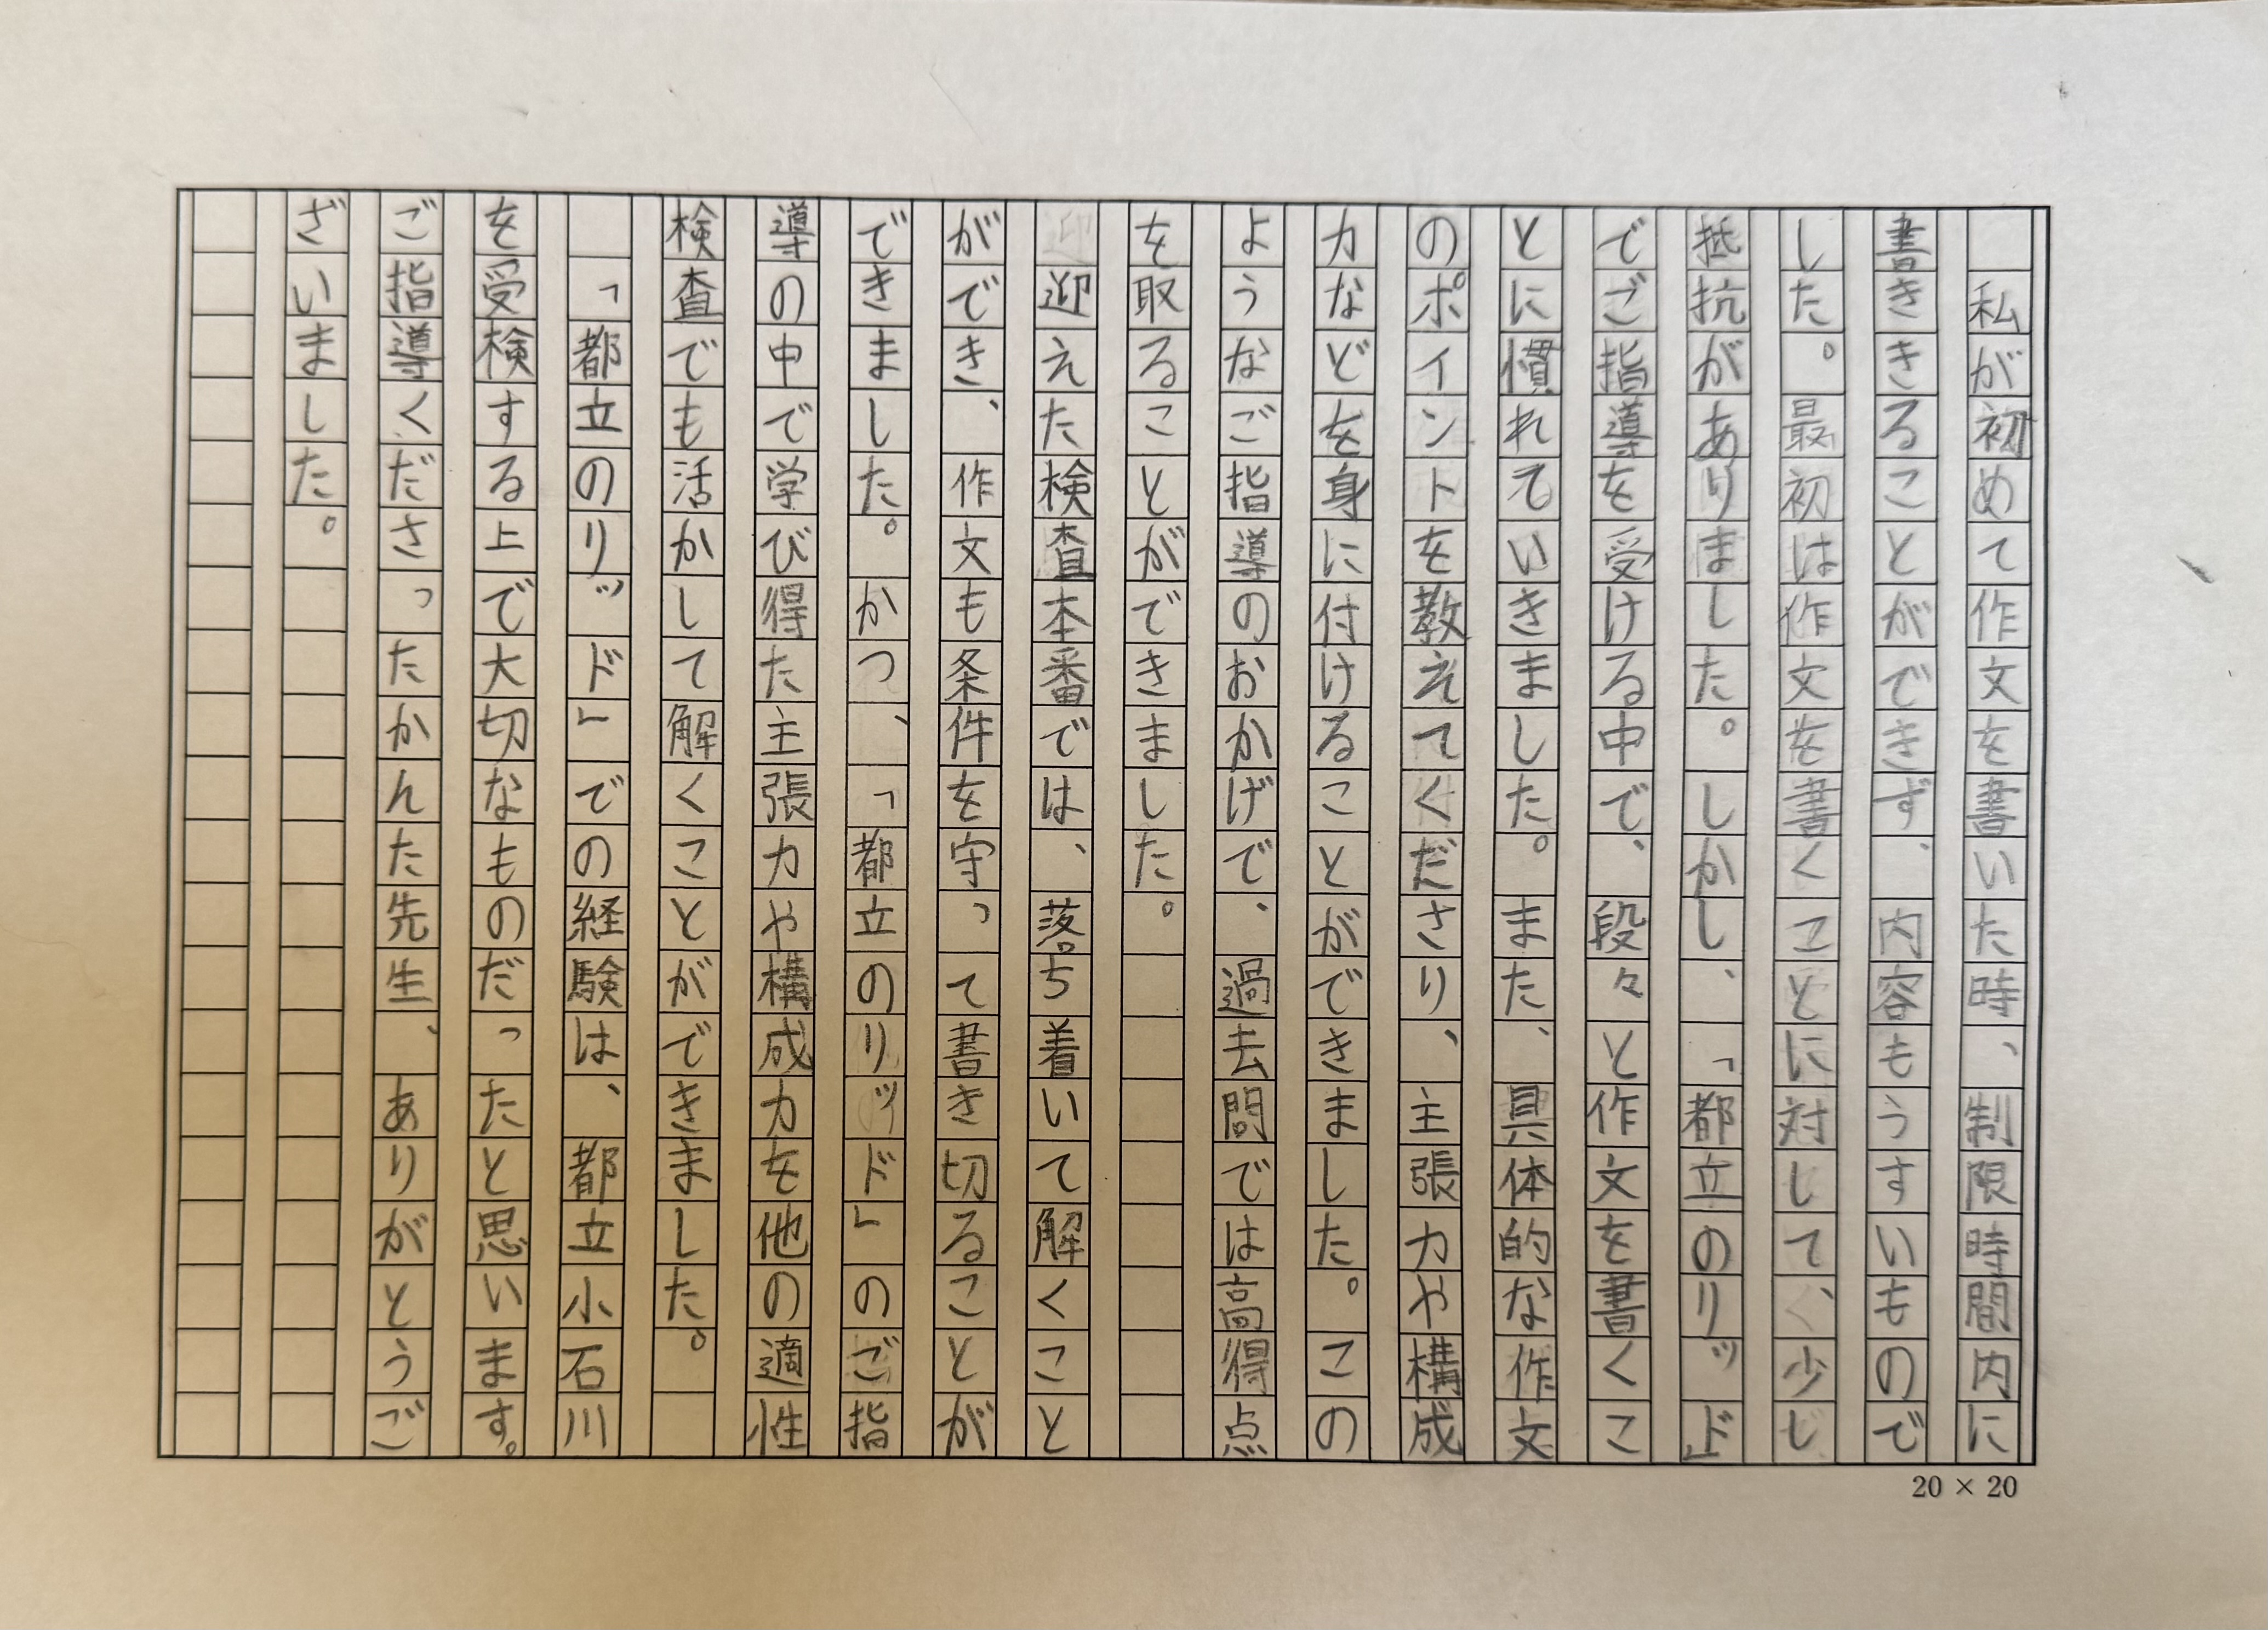 私が初めて作文を書いた時、制限時間内に
書ききることができず、内容もうすいもので
した。最初は作文を書くことに対して、少し
抵抗がありました。しかし、「都立のリッド」
でご指導を受ける中で、段々と作文を書くこ
とに慣れていきました。また、具体的な作文
のポイントを教えてくださり、主張力や構成
力などを身に付けることができました。この
ようなご指導のおかげで、過去問では高得点
を取ることができました。
　迎えた検査本番では、落ち着いて解くこと
ができ、作文も条件を守って書き切ることが
できました。かつ、「都立のリッド」のご指
導の中で学び得た主張力や構成力を他の適性
検査でも活かして解くことができました。
　「都立のリッド」での経験は、都立小石川
を受検する上で大切なものだったと思います。
ご指導くださったかんた先生、ありがとうご
ざいました。
20 × 20